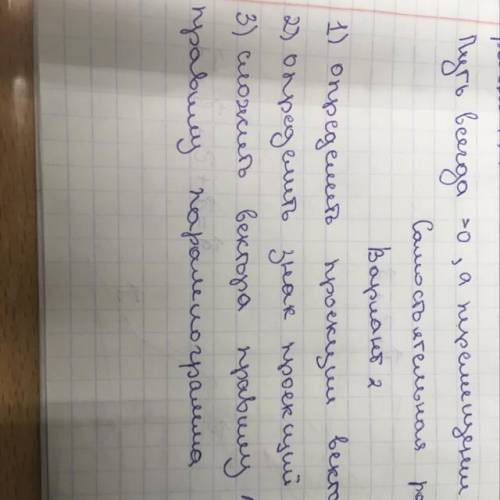 Путь всегда >0, а перемещении
Самостоятельная ра
Вариант 2
1) определить проекции вект
2) определить знак проекций
3) сложить вектора правилу
правилу параллелограмма